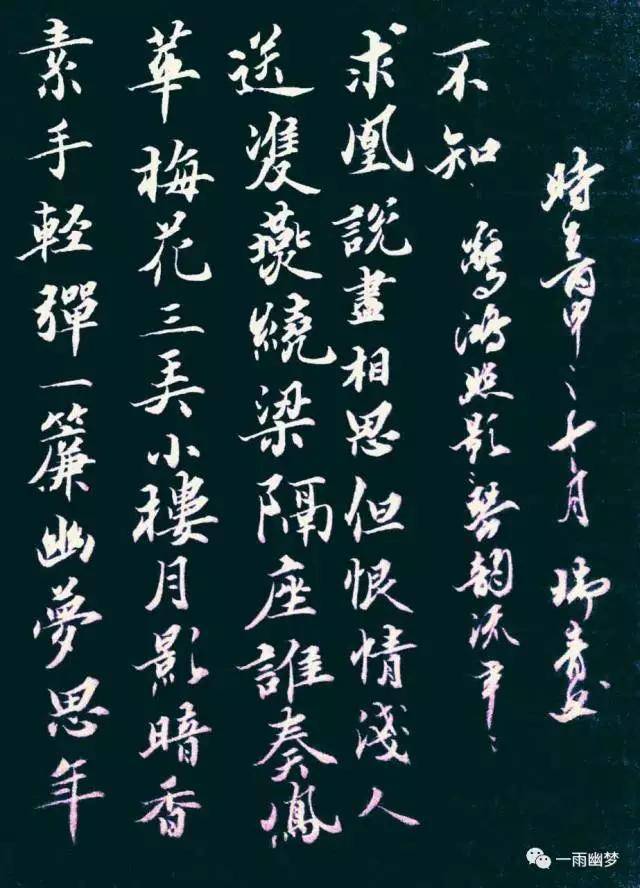 素手輕彈一簾幽夢思年
華梅花三弄小樓月影暗香
送雙燕繞梁隔座誰奏鳳
求凰說盡相思但恨情淺人
不知 驚鴻照影琴韻流年
時 甲 十月 瑞青
一雨幽梦